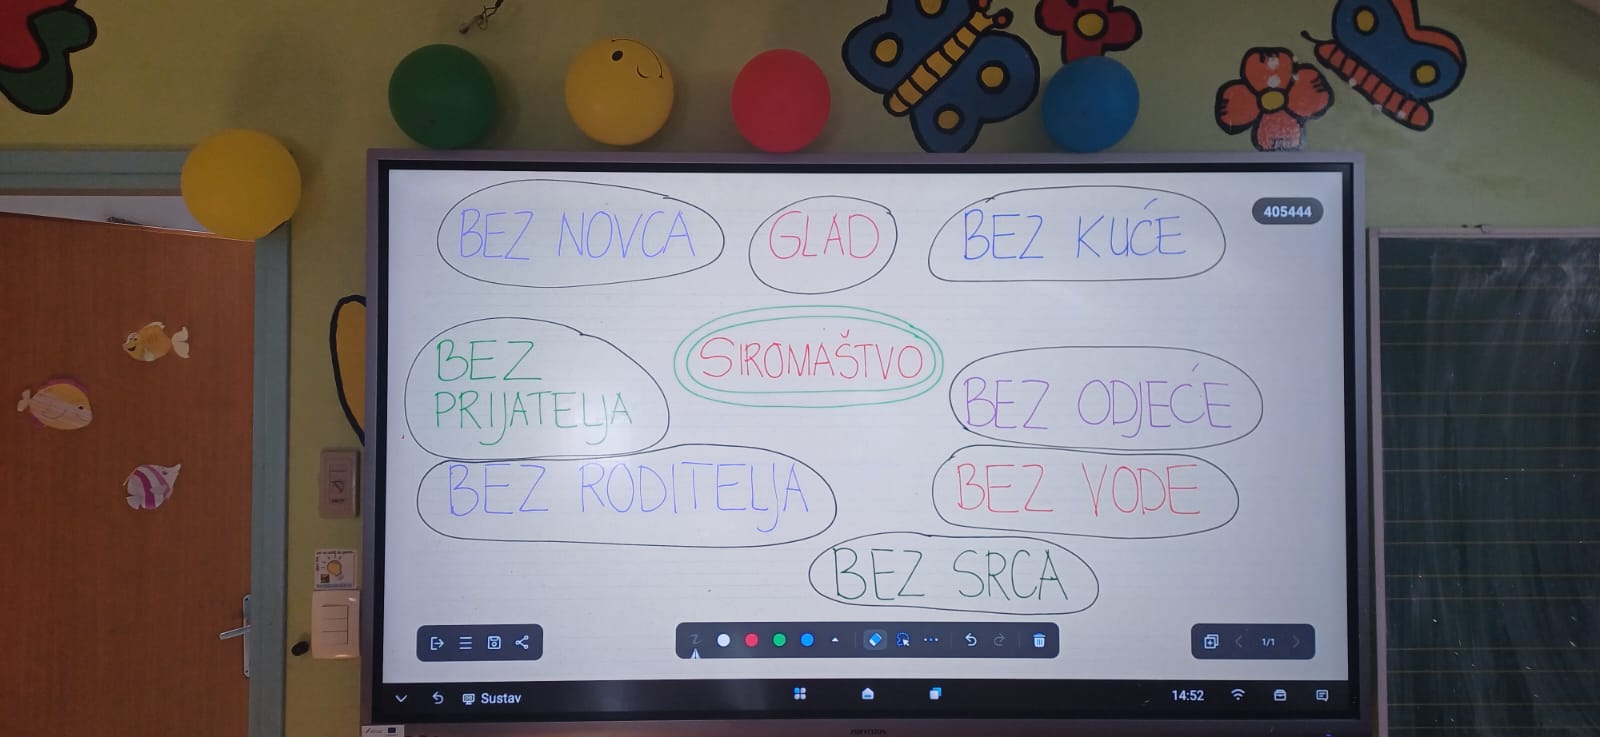 BEZ NOVCA
GLAD
BEZ KUĆE
405444
SIROMAŠTVO
BEZ
PRIJATELJA
BEZ ODJEĆE
BEZ RODITELJA
BEZ VODE
BEZ SRCA
1/1
Sustav
14:52
HIKVISION